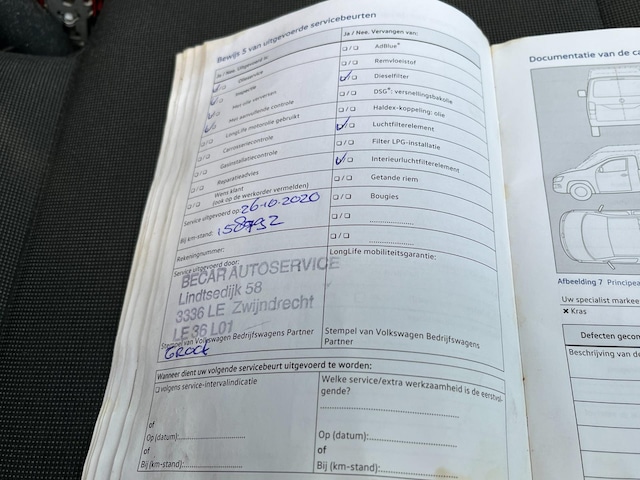 Bewijs 5 van uitgevoerde servicebeurten
Ja / Nee Uitgevoerd is:
Olieservice
Inspectie
Met olie verversen
Met aanvullende controle
LongLife motorolie gebruikt
Carrosseriecontrole
Gasinstallatiecontrole
Reparatieadvies
Wens klant
(ook op de werkorder vermelden)
Service uitgevoerd op: 26-10-2020
Bij km-stand: 158792
Rekeningnummer:
Service uitgevoerd door:
BECAR AUTOSERVICE
Lindtsedijk 58
3336 LE Zwijndrecht
LE 36 L01
Stempel van Volkswagen Bedrijfswagens Partner
Ja / Nee. Vervangen van:
AdBlue®
Remvloeistof
Dieselfilter
DSG®: versnellingsbakolie
Haldex-koppeling: olie
Luchtfilterelement
Filter LPG-installatie
Interieurluchtfilterelement
Getande riem
Bougies
LongLife mobiliteitsgarantie:
Stempel van Volkswagen Bedrijfswagens
Partner
Wanneer dient uw volgende servicebeurt uitgevoerd te worden:
volgens service-intervalindicatie
of
Op (datum):
of
Bij (km-stand):
Welke service/extra werkzaamheid is de eerstvol-
gende?
of
Op (datum):
of
Bij (km-stand):
Documentatie van de ca
Afbeelding 7 Principea
Uw specialist markee
× Kras
Defecten gecon
Beschrijving van de